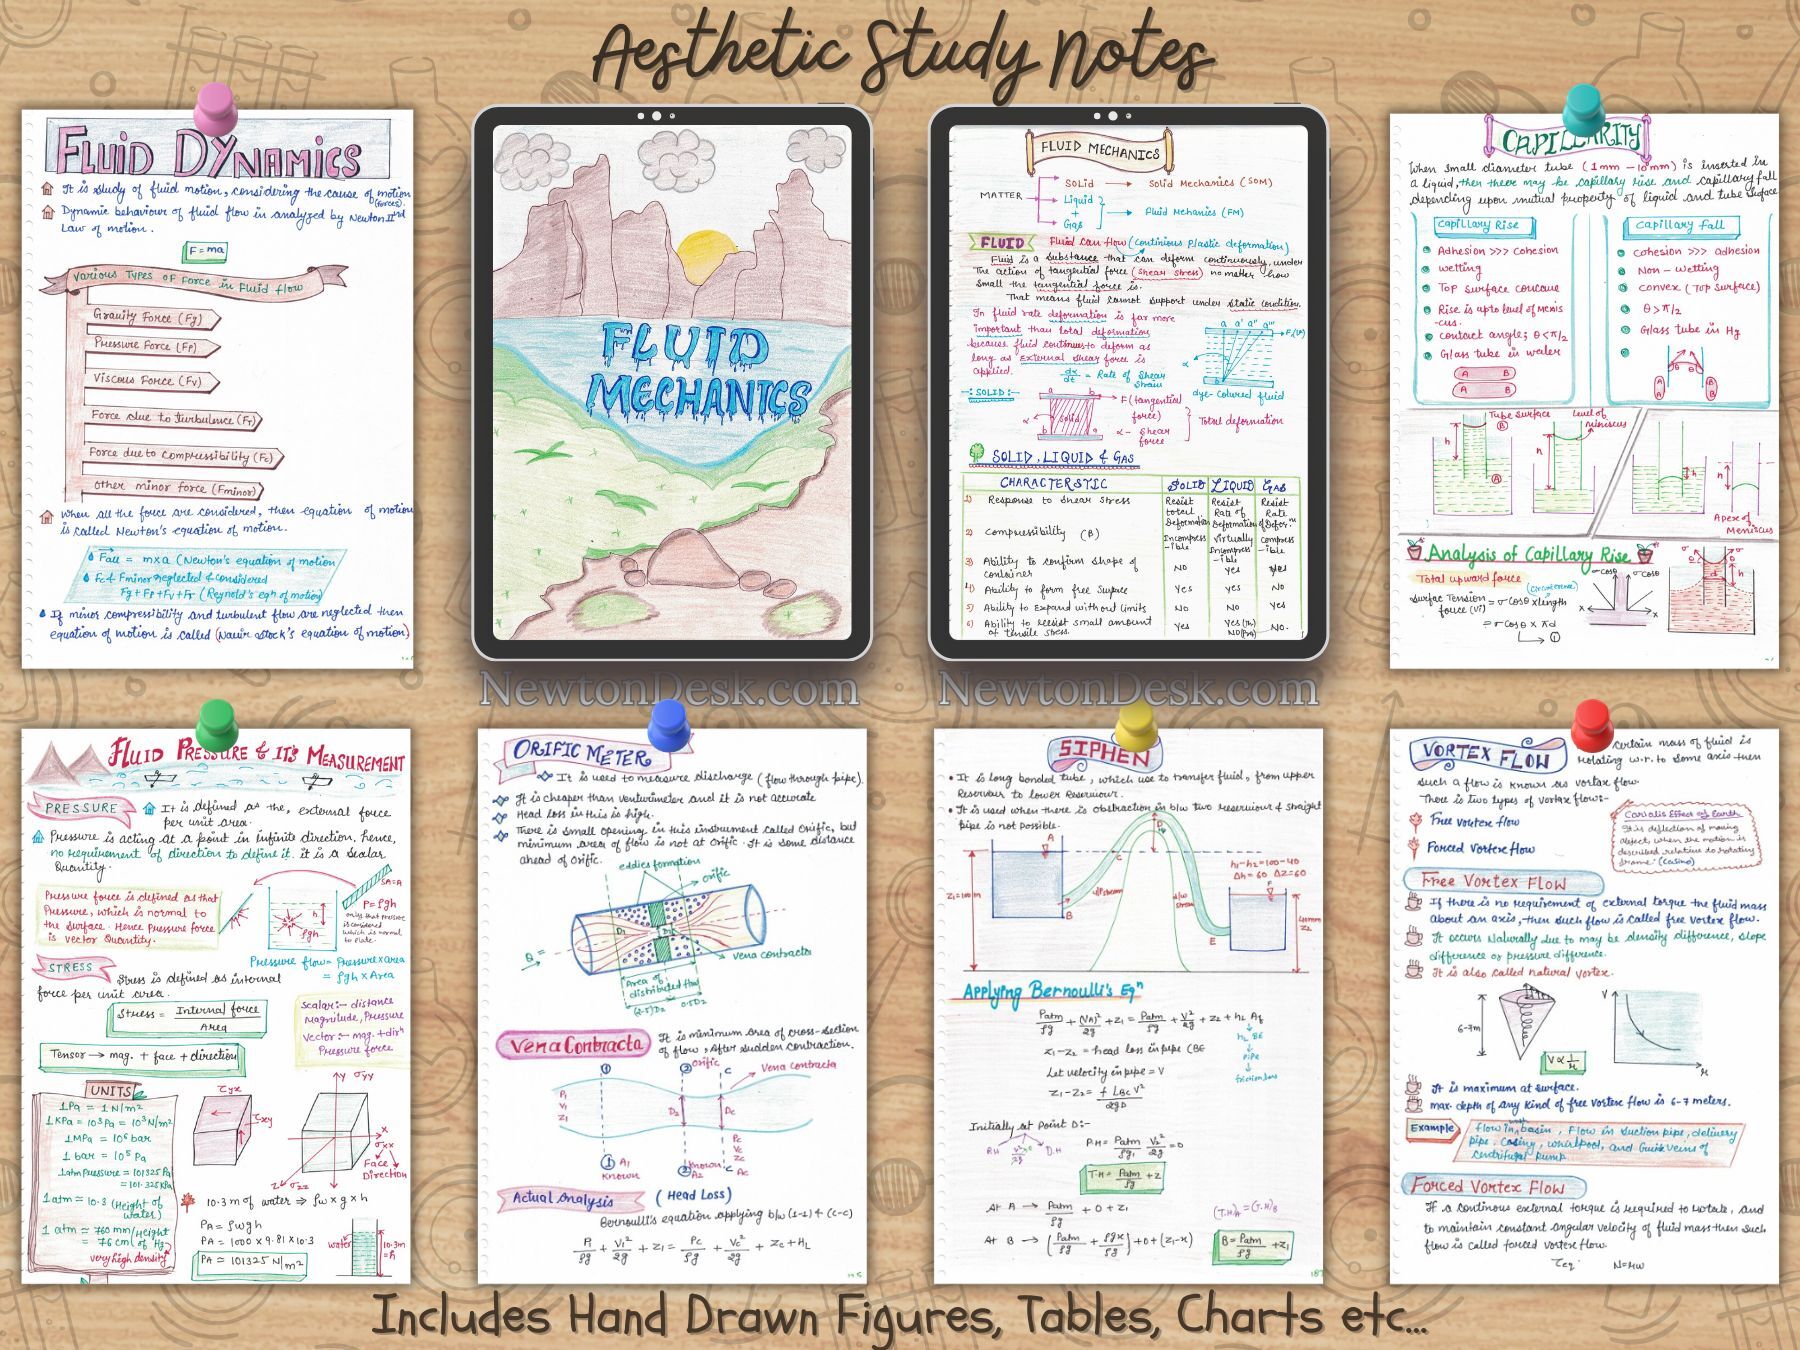 Aesthetic Study Notes
FLUID DYNAMICS
It is study of fluid motion, considering the cause of motion
(forces).
Dynamic behaviour of fluid flow in analyzed by Newton IInd
Law of motion.
F = ma
Various Types of Force in Fluid flow
Gravity Force (Fg)
Pressure Force (Fp)
Viscous Force (Fv)
Force due to turbulence (FT)
Force due to compressibility (Fc)
other minor force (Fminor)
When all the force are considered, then equation of motion
is called Newton's equation of motion.
Fall = mxa (Newton's equation of motion
Fc & Fminor neglected & considered
Fg + Fp + Fv + FT (Reynold's eqn of motion)
If minor compressibility and turbulent flow are neglected then
equation of motion is called (Navir stock's equation of motion)
FLUID
MECHANICS
FLUID MECHANICS
MATTER
Solid → Solid Mechanics (SOM)
Liquid
+
Gas
→ Fluid Mehanics (FM)
FLUID
Fluid can flow (continious plastic deformation)
Fluid is a substance that can deform continuously, under
The action of tangential force (shear stress) no matter how
small the tangential force is.
That means fluid cannot support under static condition.
In fluid rate deformation is far more
important than total deformation
because fluid continues to deform as
long as External shear force is
applied.
dα/dt = Rate of Shear
strain
dye-coloured fluid
SOLID:-
F (tangential
force)
α - shear
force
Total deformation
SOLID, LIQUID & GAS
CHARACTERSTIC SOLID LIQUID GAS
1) Response to shear stress Resist total Deformation Resist Rate of Deformation Resist Rate of Defor.n
2) Compressibility (B) Incompress-ible Virtually Incompress-ible compress-ible
3) Ability to confirm shape of container NO yes yes
4) Ability to form free Surface Yes yes NO
5) Ability to Expand without limits NO NO Yes
6) Ability to resist small amount of tensile stress. Yes NO.
CAPILLARITY
When small diameter tube (1mm - 10mm) is inserted in
a liquid, then there may be capillary rise and capillary fall
depending upon mutual property of liquid and tube surface
Capillary Rise
Adhesion >>> Cohesion
wetting
Top surface concave
Rise is upto level of menis
-cus.
contact angle; θ < π/2
Glass tube in water
A B
A B
capillary fall
Cohesion >>> adhesion
Non - wetting
convex (Top surface)
θ > π/2
Glass tube in Hg
Tube surface
Level of
meniscus
Apex of
Meniscus
Analysis of Capillary Rise
Total upward force
(circumference)
Surface Tension = σ cosθ x length
force
= σ cosθ x πd
NewtonDesk.com
NewtonDesk.com
FLUID PRESSURE & IT'S MEASUREMENT
PRESSURE
It is defined as the, external force
per unit area.
Pressure is acting at a point in infinite direction. hence,
no requirement of direction to define it. it is a scalar
Quantity.
Pressure force is defined as that
Pressure, which is normal to
the surface. Hence Pressure force
is vector Quantity.
ρgh
P = ρgh
only that pressure
is considered
which is normal
to plate.
Pressure flow = Pressure x area
= ρgh x Area
STRESS
Stress is defined as internal
force per unit area.
Stress = Internal force
Area
Tensor → mag. + face + direction
Scalar:- distance
Magnitude, Pressure
Vector:- mag. + dirn
Pressure force
UNITS
1 Pa = 1 N/m²
1 KPa = 10³ Pa = 10³ N/m²
1 MPa = 10⁶ bar
1 bar = 10⁵ Pa
1 atm pressure = 101325 Pa
= 101.325 KPa
1 atm = 10.3 (Height of
water)
1 atm = 760 mm (Height
= 76 cm of Hg)
very high density
τyx
τxy
σyy
σxx
σzz
Face
Direction
10.3 m of water ⇒ ρw x g x h
PA = ρwgh
PA = 1000 x 9.81 x 10.3
PA = 101325 N/m²
water
10.3m
= h
ORIFIC METER
It is used to measure discharge (flow through pipe).
It is cheaper than venturimeter and it is not accurate
Head loss in this is high.
There is small opening in this instrument called orific, but
minimum area of flow is not at orific. It is some distance
ahead of orific.
eddies formation
orific
vena contracta
Area of
distributed flow
0.5D2
Vena Contracta
It is minimum area of cross-section
of flow, After sudden contraction.
orific
Vena contracta
A1
known
known
A2
Ac
Actual Analysis (Head Loss)
Bernoulli's equation applying b/w (1-1) & (c-c)
P1/ρg + V1²/2g + Z1 = Pc/ρg + Vc²/2g + Zc + HL
SIPHEN
It is long bonded tube, which use to transfer fluid, from upper
Reservoir to lower Reservoir.
It is used when there is obstraction in b/w two reserviour & straight
pipe is not possible.
h1-h2 = 100-40
Δh = 60 ΔZ = 60
Z1 = 100m
Applying Bernoulli's Eqn
Z1 - Z2 = head loss in pipe (BE
Let velocity in pipe = V
Z1 - Z2 = f LBE V²
2gD
friction loss
pipe
Initially at Point D:-
At A → Patm/ρg + 0 + Z1
(T.H)A = (T.H)B
VORTEX FLOW
Certain mass of fluid is
Rotating w.r.to some axis then
such a flow is known as vortex flow
There is two types of Vortex flow:-
Free vortex flow
Forced Vortex flow
Corialis Effect of Earth
It is deflection of moving
object when the motion is
described relative to rotating
frame.
Free Vortex Flow
If there is no requirement of external torque the fluid mass
about an axis, then such flow is called free vortex flow.
It occurs Naturally due to may be density difference, slope
difference or pressure difference.
It is also called natural vortex.
6-7m
V ∝ 1/r
It is maximum at surface.
max. depth of any kind of free vortex flow is 6-7 meters.
Example
Flow in basin, Flow in suction pipe, delivery
pipe. Casing, whirlpool, and Guide veins of
centrifugal pump
Forced Vortex Flow
If a continous external torque is required to rotate, and
to maintain constant angular velocity of fluid mass then such
flow is called forced vortex flow.
Includes Hand Drawn Figures, Tables, Charts etc...